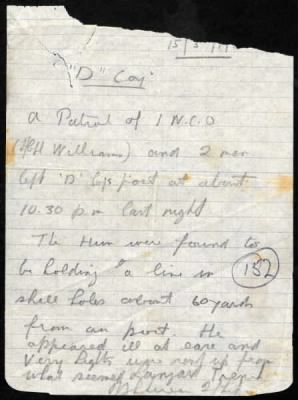 15/5/
"D" Coy
A Patrol of 1 N.C.O
(Williams) and 2 men
left 'D' Coys post at about
10.30 p.m last night
The Hun were found to
be holding a line in
152
shell holes about 60 yards
from our post. He
appeared ill at ease and
Very lights were sent up from
what seemed Trench